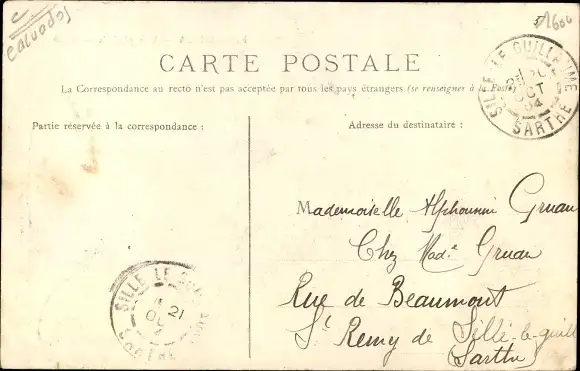 Calvados
CARTE POSTALE
La Correspondance au recto n'est pas acceptée par tous les pays étrangers (se renseigner à la Poste)
Partie réservée à la correspondance :
Adresse du destinataire :
SILLE LE GUILLAUME
OCT
04
SARTHE
Mademoiselle Alphonsine Gruau
Chez Mad.e Gruau
Rue de Beaumont
St Remy de Sillé-le-guill
(Sarthe)
SILLE LE GUI
21
SARTHE